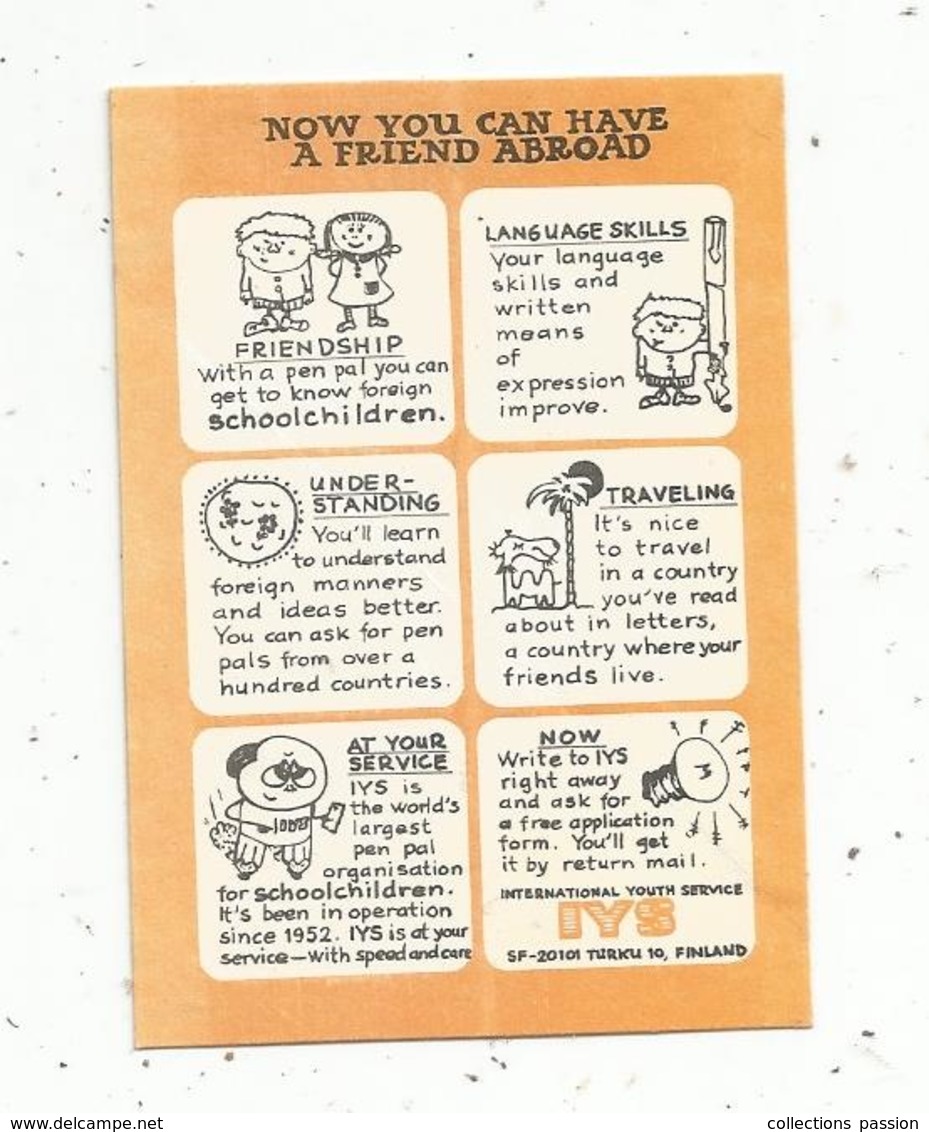 NOW YOU CAN HAVE
A FRIEND ABROAD
FRIENDSHIP
With a pen pal you can
get to know foreign
schoolchildren.
LANGUAGE SKILLS
Your language
skills and
written
means
of
expression
improve.
UNDER-
STANDING
You'll learn
to understand
foreign manners
and ideas better.
You can ask for pen
pals from over a
hundred countries.
TRAVELING
It's nice
to travel
in a country
you've read
about in letters,
a country where your
friends live.
AT YOUR
SERVICE
IYS is
the world's
largest
pen pal
organisation
for schoolchildren.
It's been in operation
since 1952. IYS is at your
service—with speed and care
NOW
Write to IYS
right away
and ask for
a free application
form. You'll get
it by return mail.
INTERNATIONAL YOUTH SERVICE
IYS
SF-20101 TURKU 10, FINLAND
www.delcampe.net
collections passion